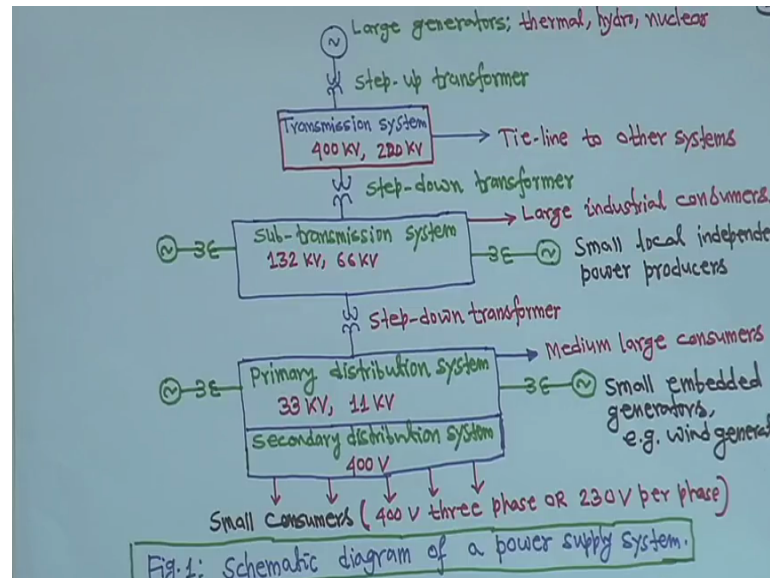 Large generators; thermal, hydro, nuclear
step-up transformer
Transmission system
400 KV, 220 KV
Tie-line to other systems
step-down transformer
Large industrial consumers
Sub-transmission system
132 KV, 66 KV
Small local
power producers
step-down transformer
Medium large consumers
Primary distribution system
33 KV, 11 KV
Small embedded
generators,
e.g. wind
Secondary distribution system
400 V
Small consumers (400 V three phase OR 230 V per phase)
Fig.1: Schematic diagram of a power supply system.